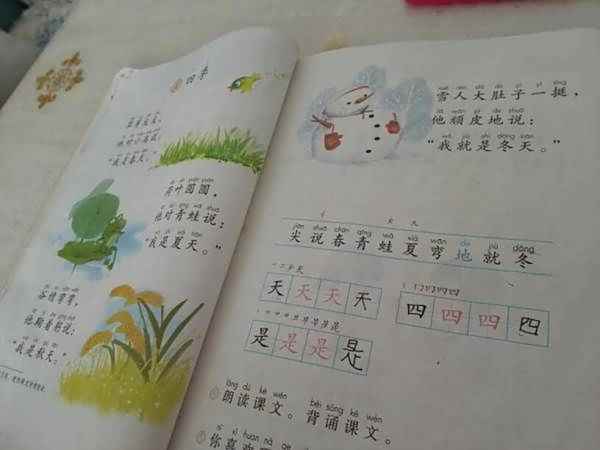 四季
草芽尖尖,
他对小鸟说:
“我是春天。”
荷叶圆圆,
他对青蛙说:
“我是夏天。”
谷穗弯弯,
他鞠着躬说:
“我是秋天。”
雪人大肚子一挺,
他顽皮地说:
“我就是冬天。”
jiān shuō chūn qīng wā xià wān de jiù dōng
尖 说 春 青 蛙 夏 弯 地 就 冬
天 天 天 天
四 四 四 四
是 是 是 是
lǎng dú kè wén bèi sòng kè wén
朗读课文。背诵课文。
你喜欢